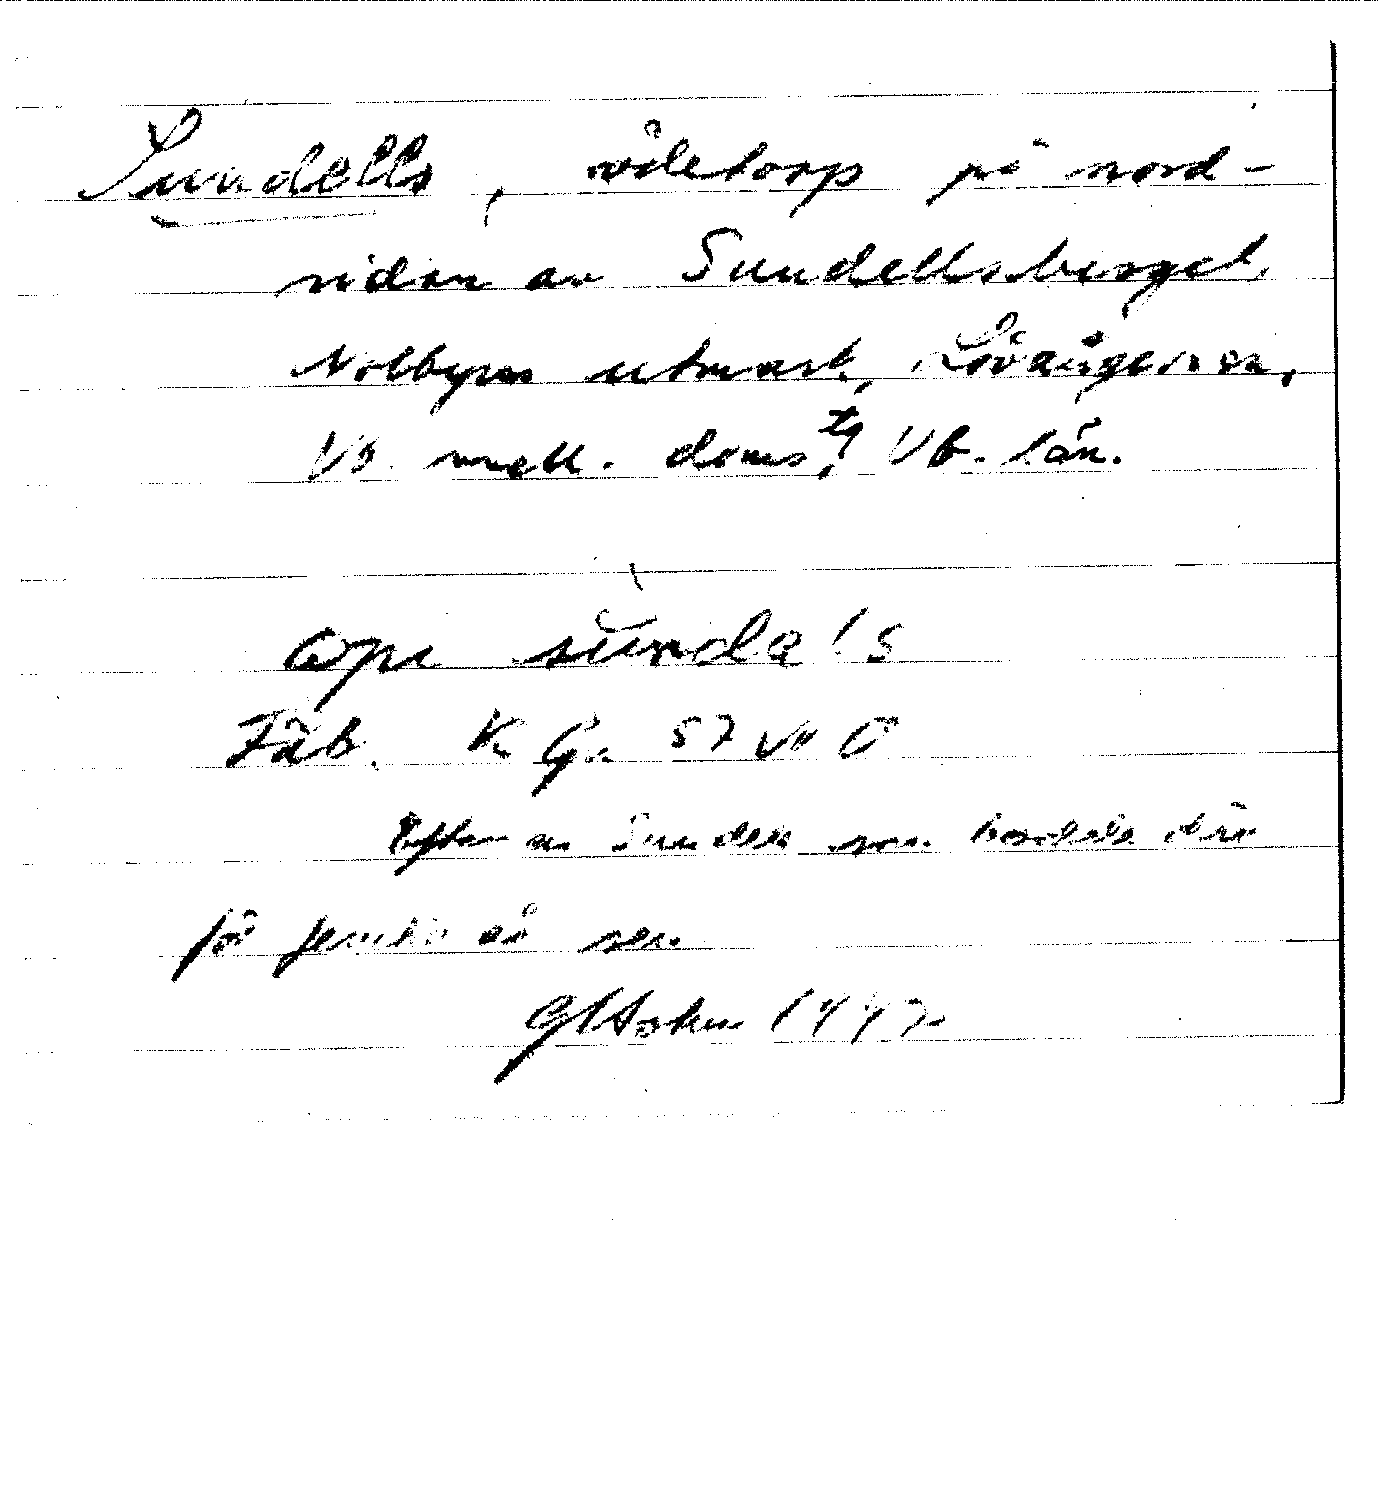 Sundells, ödetorp på nord-
sidan av Sundellsberget,
Nolbyns utmark, Lövångers sn,
Vb. mell. doms.tg Vb. län.
opa sundals
Fäb. K G. 57 VII
Efter en Sundell som bodde där
för femtio år sen.